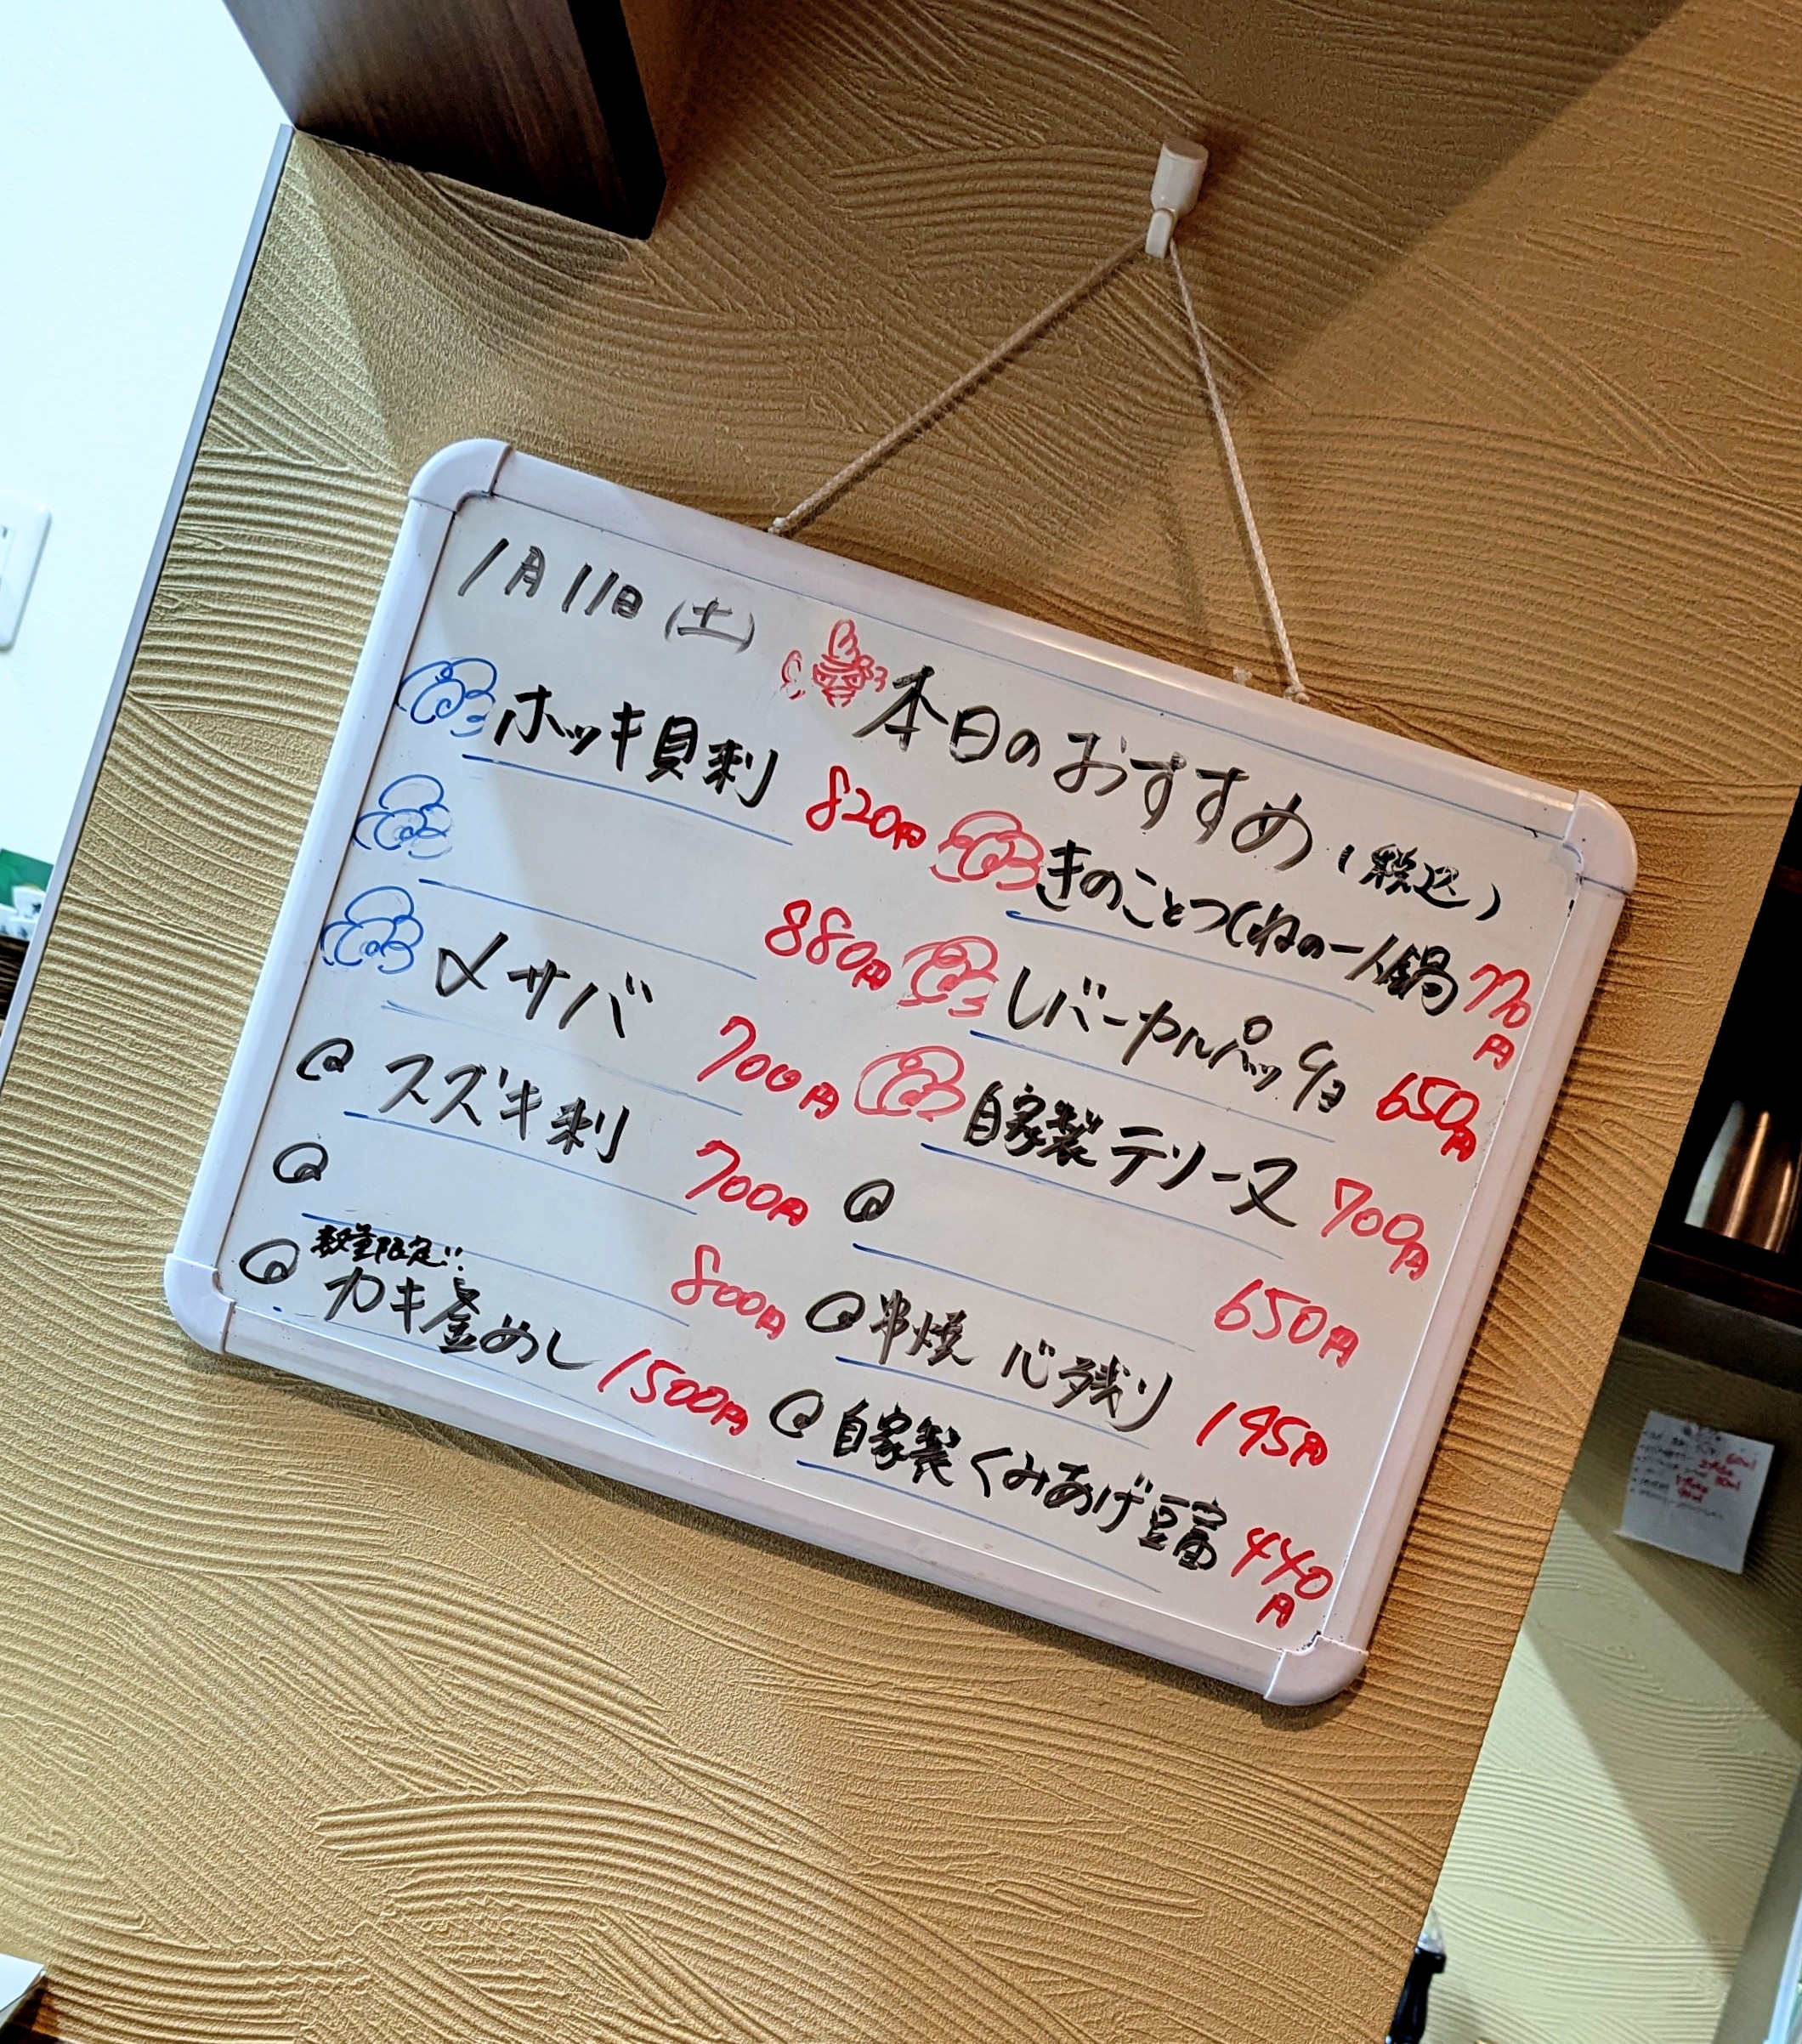 1月11日(土)
本日のおすすめ(税込)
ホッキ貝刺 820円
880円
〆サバ 700円
スズキ刺 700円
800円
数量限定!!
カキ釜めし 1500円
きのことつくねの一人鍋 770円
レバーカルパッチョ 650円
自家製テリーヌ 700円
650円
串焼 心残り 195円
自家製くみあげ豆富 440円